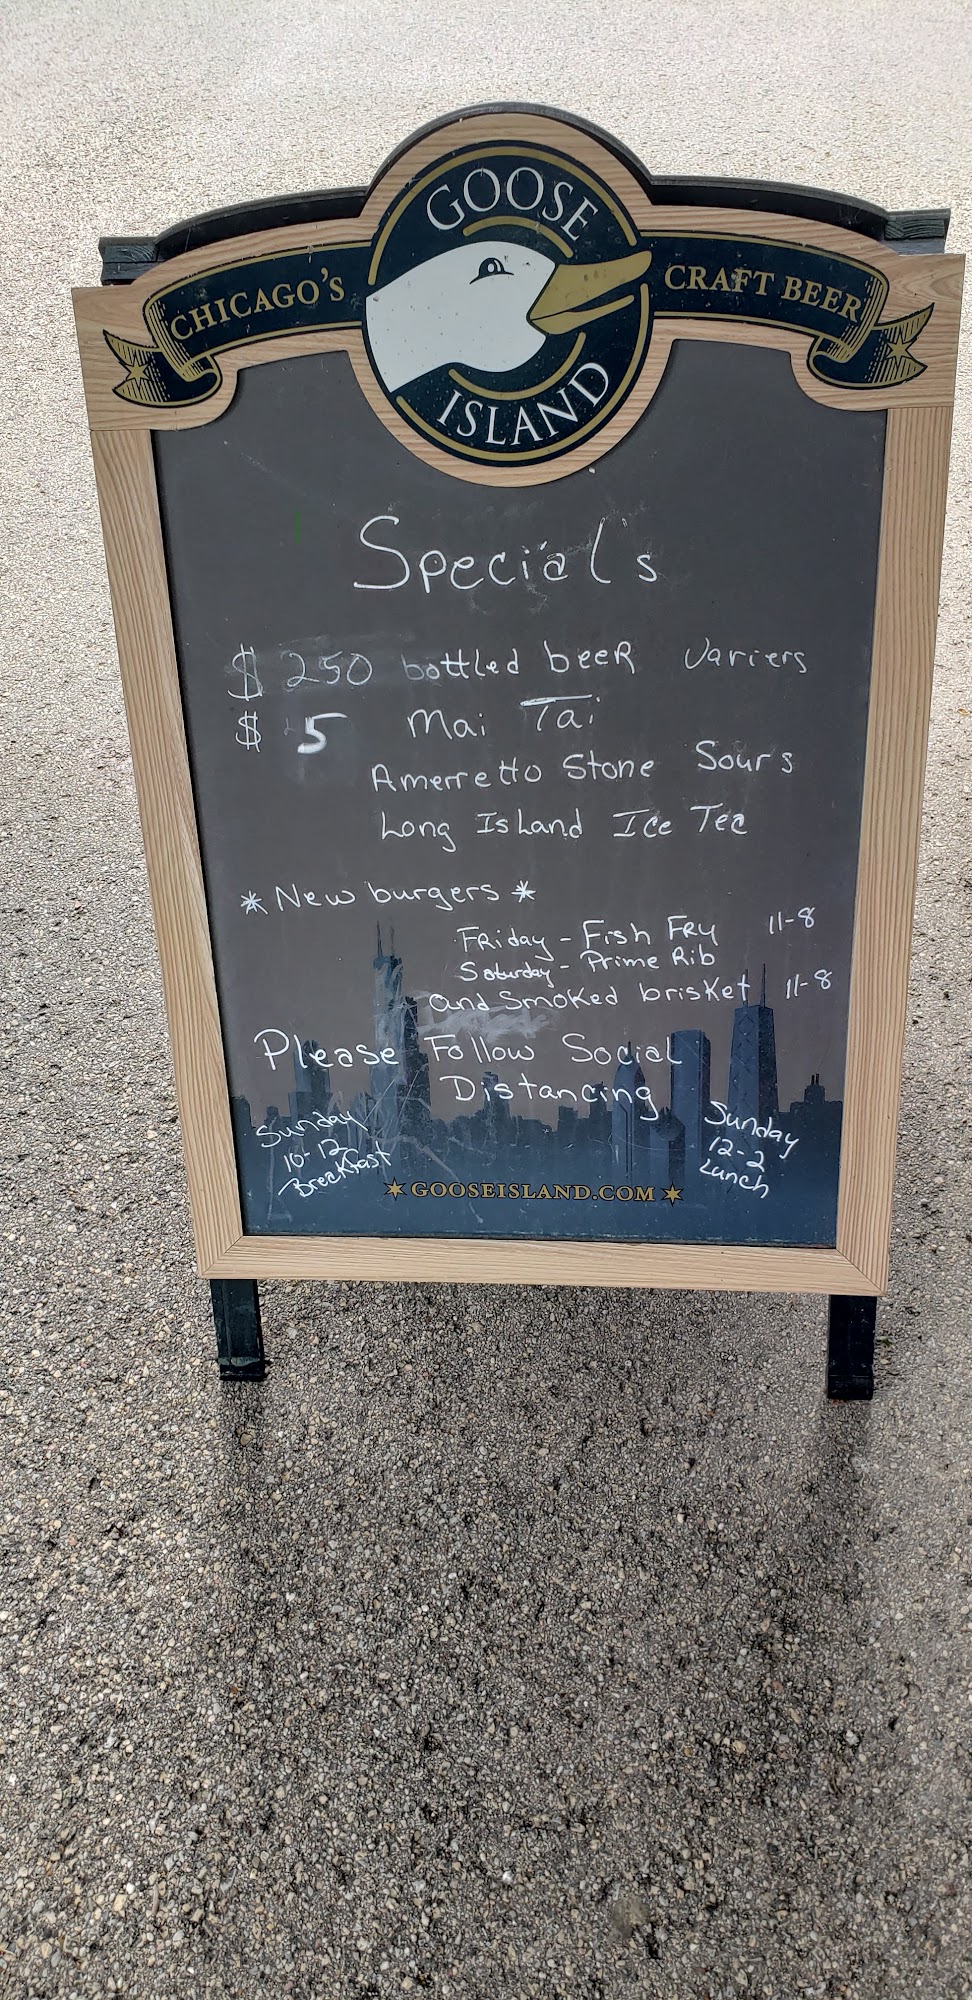 GOOSE
CHICAGO'S
CRAFT BEER
ISLAND
Special's
$ 250 bottled beer Variers
$ 5 Mai Tai
Amerretto Stone Sours
Long Island Ice Tea
*New burgers*
Friday - Fish Fry 11-8
Saturday - Prime Rib
and Smoked brisket 11-8
Please Follow Social
Distancing
Sunday
10-12
Breakfast
Sunday
12-2
Lunch
GOOSEISLAND.COM